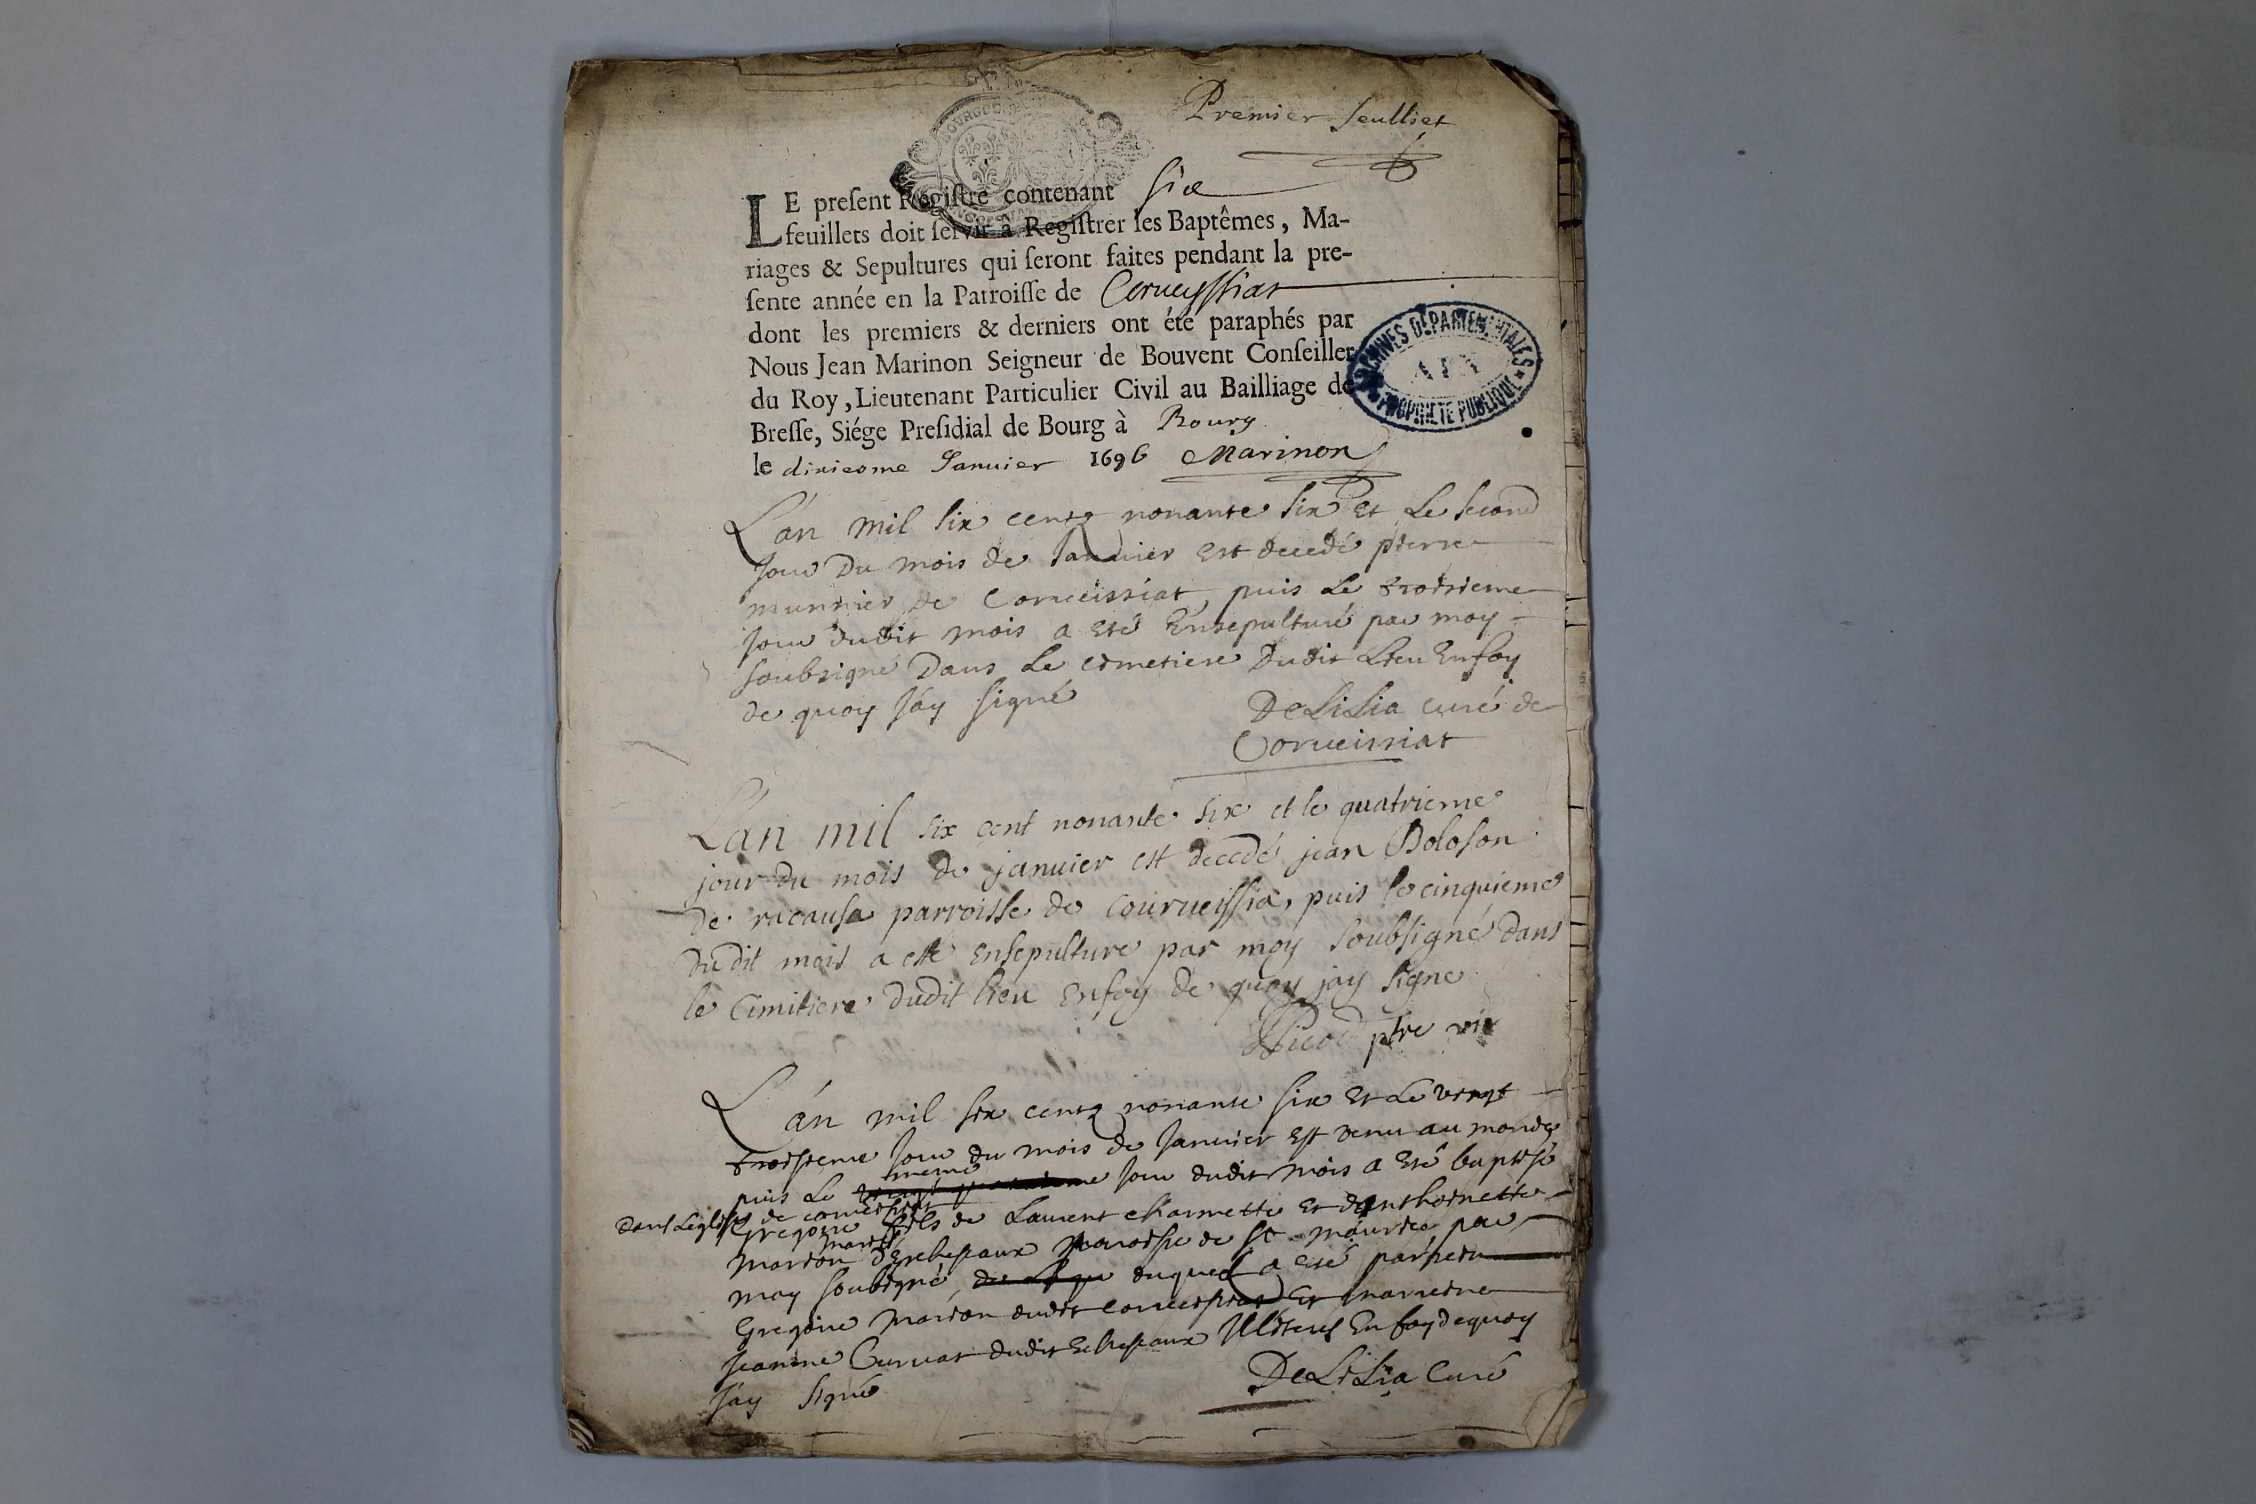 Premier feulliet
LE preſent Regiſtre contenant six
feuillets doit ſervir à Regiſtrer les Baptêmes, Ma-
riages & Sepultures qui ſeront faites pendant la pre-
ſente année en la Parroiſſe de Corveyssiat
dont les premiers & derniers ont été paraphés par
Nous Jean Marinon Seigneur de Bouvent Conſeiller
du Roy, Lieutenant Particulier Civil au Bailliage de
Breſſe, Siége Preſidial de Bourg à Bourg
le dixiesme Januier 1696 Marinon
ARCHIVES DÉPARTEMENTALES
AIN
PROPRIETE PUBLIQUE
L'an mil six centz nonante six Et Le second
jour Du mois de Januier Est decedé pierre
munnier de Corveissiat, puis Le troisieme
jour dudit mois a Eté Ensepulturé par moy
soubsigné Dans Le cimetiere Dudit Lieu En foy
de quoy j'ay signé
DeLiLia curé de
Corveissiat
L'an mil six cent nonante six et le quatrieme
jour du mois de januier est decedé jean Boloson
de racouse parroisse de Courveissia, puis le cinquieme
dudit mois a esté ensepulture par moy soubsigné dans
le Cimitiere dudit lieu en foy de quoy jay signe
ptre vic
L'an mil six centz nonante six Et Le vingt
troisieme jour du mois de Januier Est venu au monde
meme
puis Le jour dudit mois a Eté baptisé
Dans Leglise de corveissiat
Gregoire fils de Laurent charmette Et d'anthoinette
mariés
Marion d'Echesaux parroisse de St maurice, par
moy soubsigné, duquel a esté parrein
Gregoire Marion dudit Corveissiat Et marreine
Jeanne Curvat dudit Echesaux Illiterés En foy de quoy
j'ay signé
DeLiLia Curé